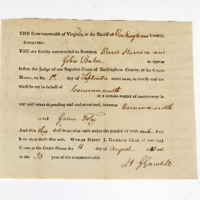 THE Commonwealth of Virginia, to the Sheriff of Rockingham County,
GREETING:
YOU are hereby commanded to Summon
John
to appear
before the Judge of our Superior Court of Rockingham County, at the Court-
House, on the 1st day of September court next, to testify and the
truth to say in behalf of Commonwealth
in a certain matter of controversy in
our said court depending and undetermined, between Commonwealth
and
And this they shall in no wise omit under the penalty of £ each. And have
then there this writ. WITNESS HENRY J. GAMBILL Clerk of our said
Court at the Court-House the 16 day of August 18
in the year of the commonwealth.
H J Gambill